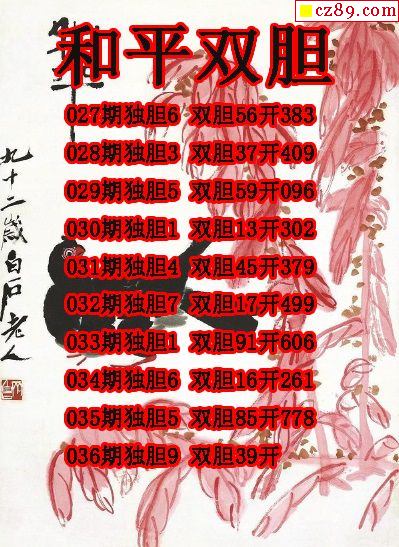 cz89.com
和平双胆
027期独胆6 双胆56开383
028期独胆3 双胆37开409
029期独胆5 双胆59开096
030期独胆1 双胆13开302
031期独胆4 双胆45开379
032期独胆7 双胆17开499
033期独胆1 双胆91开606
034期独胆6 双胆16开261
035期独胆5 双胆85开778
036期独胆9 双胆39开
九十二岁白石老人